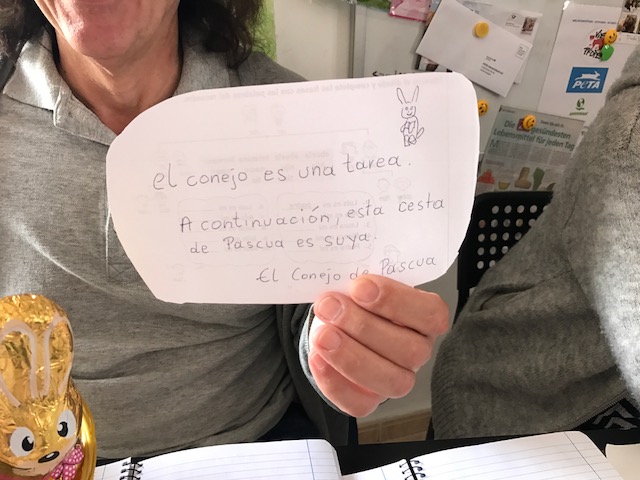 el conejo es una tarea.
A continuación, esta cesta
de Pascua es suya.
El Conejo de Pascua
PETA
Die gesündesten
Lebensmittel für jeden Tag